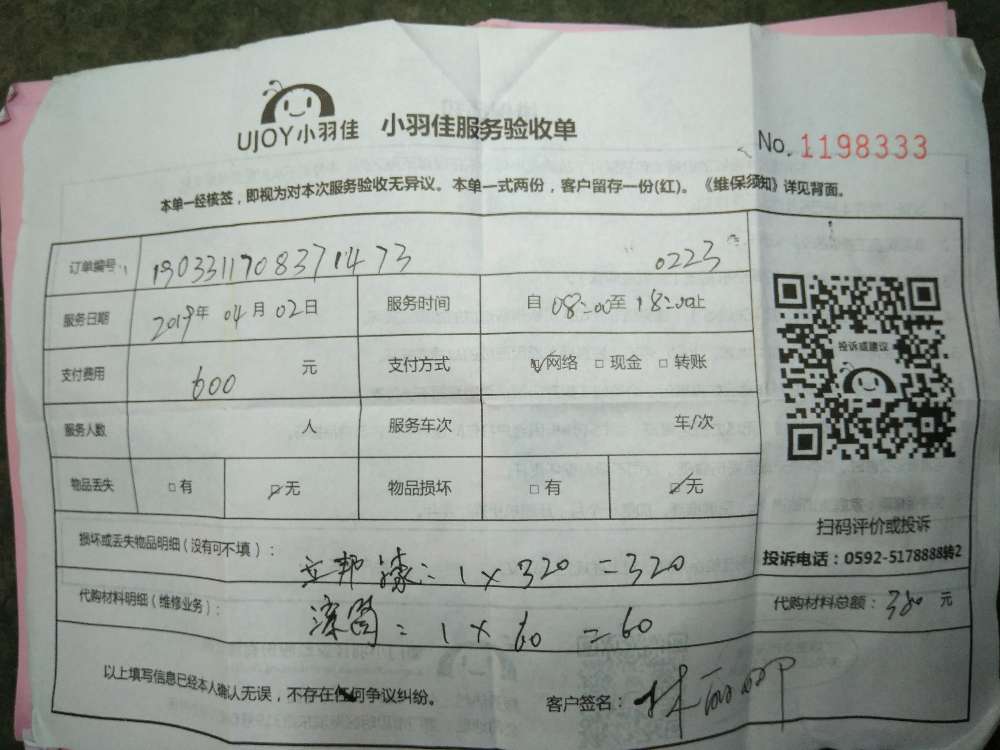 UJOY小羽佳 小羽佳服务验收单
No. 1198333
本单一经核签，即视为对本次服务验收无异议。本单一式两份，客户留存一份(红)。《维保须知》详见背面。
订单编号： 1903311708371473 0223
服务日期 2019年 04月 02日 服务时间 自 08:00至 18:00止
支付费用 600 元 支付方式 ☑网络 □ 现金 □ 转账
投诉或建议
服务人数 人 服务车次 车/次
物品丢失 □ 有 ☑ 无 物品损坏 □ 有 ☑ 无
扫码评价或投诉
损坏或丢失物品明细（没有可不填）：
投诉电话：0592-5178888转2
立邦漆：1 × 320 = 320
代购材料明细（维修业务）：
代购材料总额：380 元
1 × 60 = 60
以上填写信息已经本人确认无误，不存在任何争议纠纷。
客户签名：林